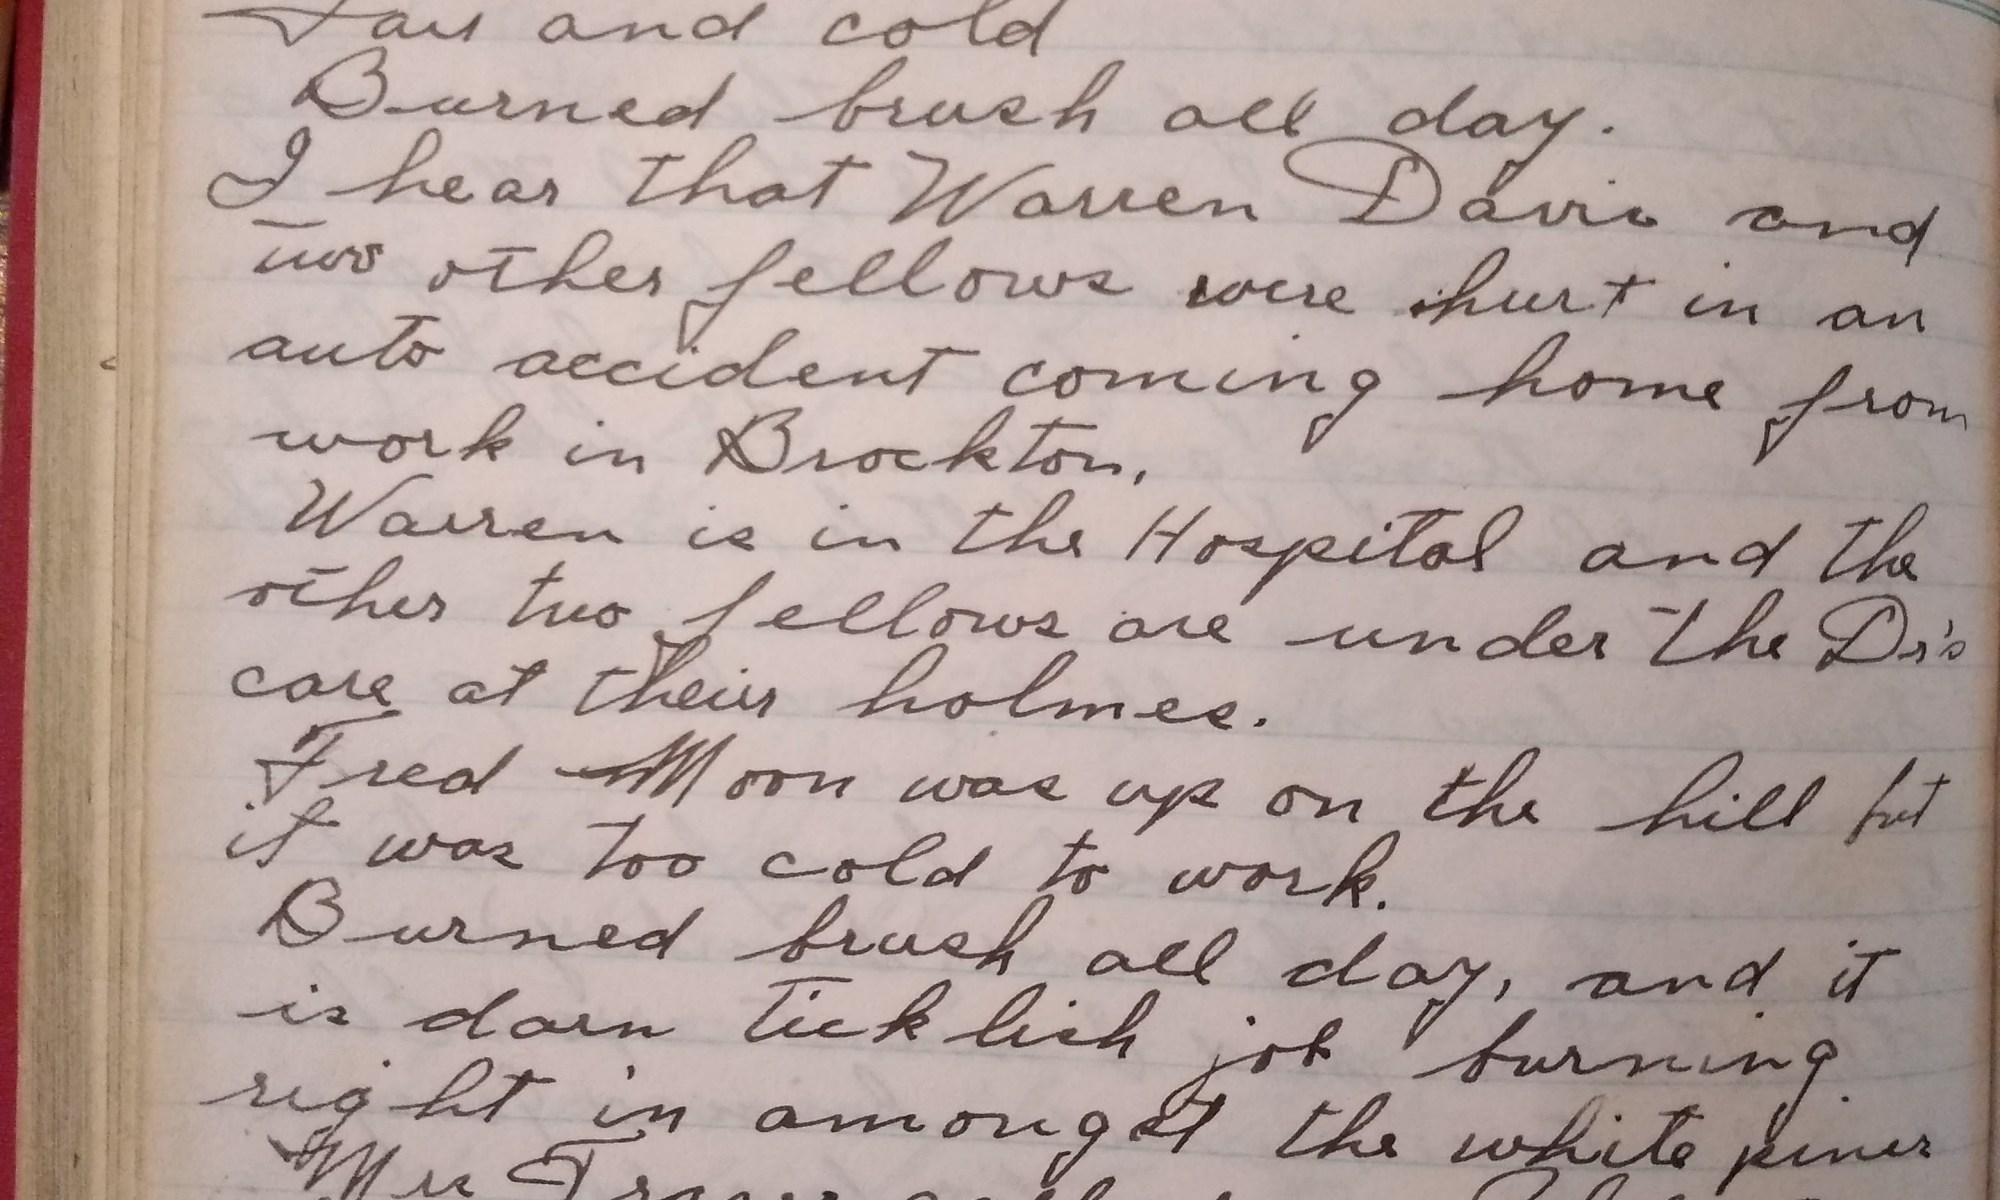 Fair and cold
Burned brush all day.
I hear that Warren Davis and
two other fellows were hurt in an
auto accident coming home from
work in Brockton,
Warren is in the Hospital and the
other two fellows are under the Dr's
care at their holmes.
Fred Moon was up on the hill but
it was too cold to work.
Burned brush all day, and it
is darn ticklish job burning
right in amongst the white pines